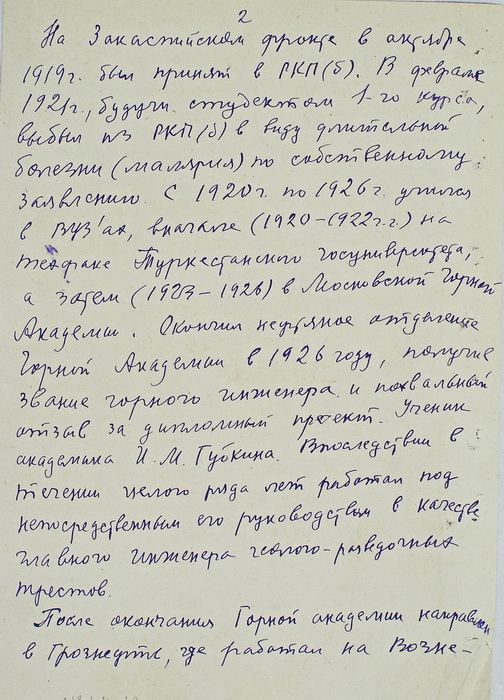 2
На Закаспийском фронте в октябре
1919г. был принят в РКП(б). В феврале
1921г., будучи студентом 1-го курса,
выбыл из РКП(б) в виду длительной
болезни (малярия) по собственному
заявлению. С 1920г. по 1926г. учился
в ВУЗ'ах, вначале (1920-1922г.г.) на
техфаке Туркестанского госуниверситета,
а затем (1923-1926) в Московской Горной
Академии. Окончил нефтяное отделение
Горной Академии в 1926 году, получив
звание горного инженера и похвальный
отзыв за дипломный проект. Ученик
академика И.М. Губкина. Впоследствии в
течении целого ряда лет работал под
непосредственным его руководством в качестве
главного инженера геолого-разведочных
трестов.
После окончания Горной академии направлен
в Грознефть, где работал на Возне-